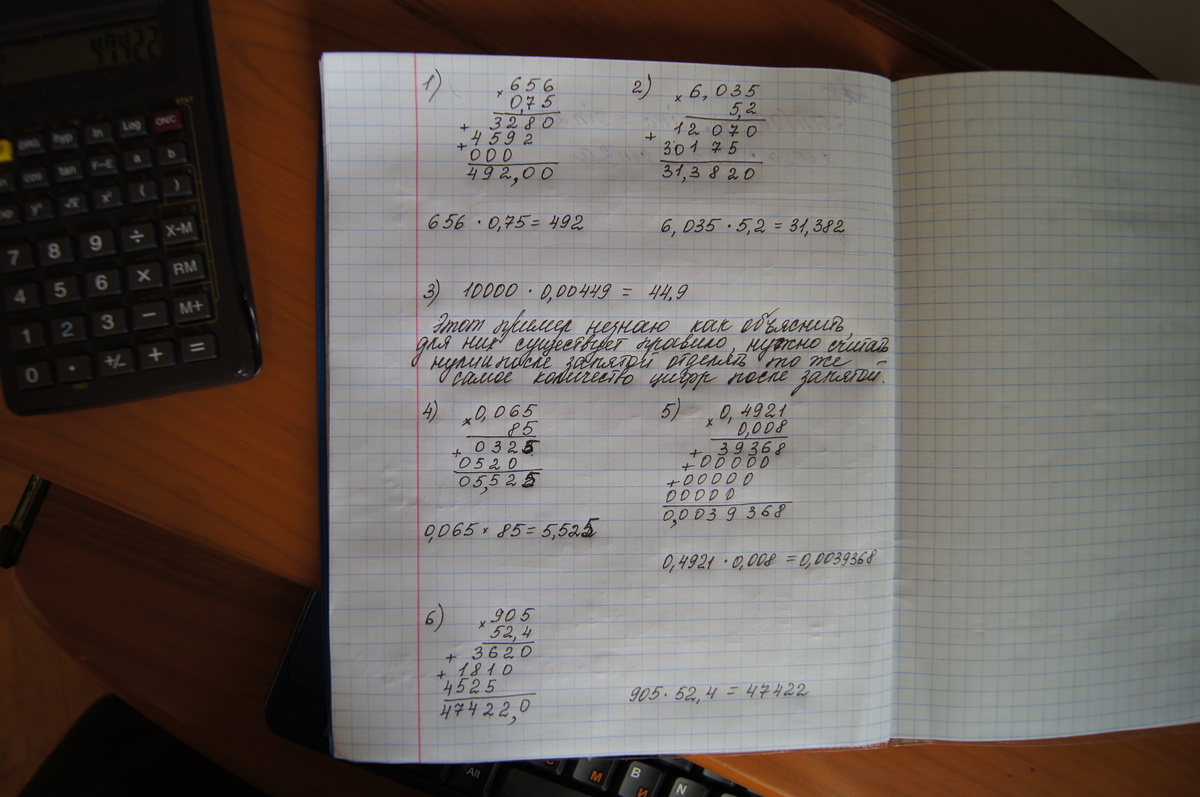 49422
STAT
DRG hyp ln Log ON/C
cos tan F-E a b
yˣ √x x² ( )
7 8 9 ÷ X-M
4 5 6 × RM
1 2 3 − M+
0 · +/- + =
1)
× 656
0,75
+ 3280
+ 4592
000
492,00
656 · 0,75 = 492
2)
× 6,035
5,2
+ 12070
30175
31,3820
6,035 · 5,2 = 31,382
3) 10000 · 0,00449 = 44,9
Этот пример незнаю как объяснить,
для них существует правило, нужно считать
нули и после запятой отделять то же
самое количество цифр после запятой.
4)
× 0,065
85
+ 0325
0520
05,525
0,065 × 85 = 5,525
5)
× 0,4921
0,008
+ 39368
+ 00000
+ 00000
00000
0,0039368
0,4921 · 0,008 = 0,0039368
6)
× 905
52,4
+ 3620
+ 1810
4525
47422,0
905 · 52,4 = 47422
Alt
M
B И
N